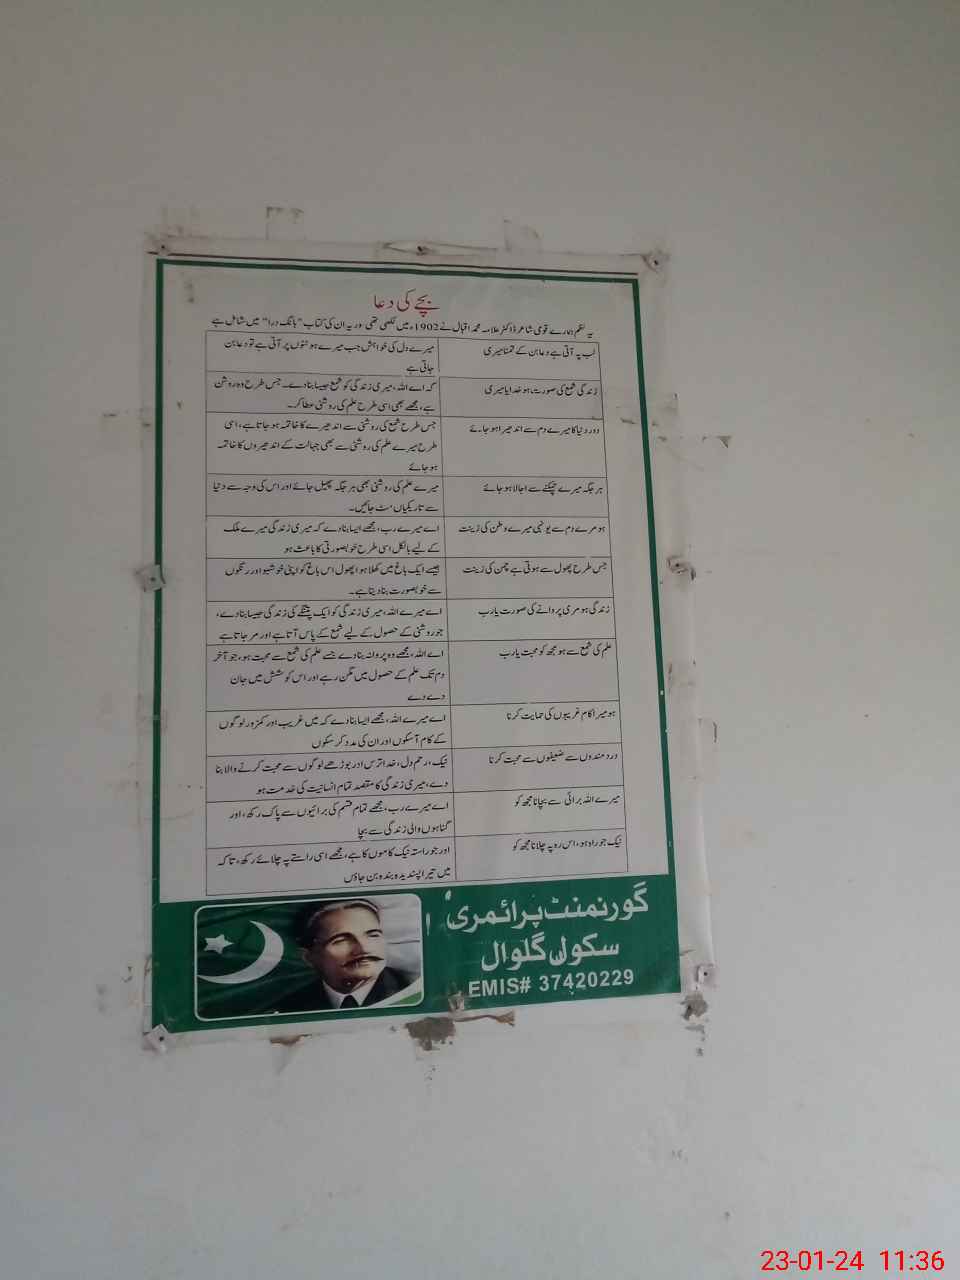 بچے کی دعا
یہ نظم ہمارے قومی شاعر ڈاکٹر علامہ محمد اقبال نے 1902ء میں لکھی تھی اور یہ ان کی کتاب "بانگ درا" میں شامل ہے
لب پہ آتی ہے دعا بن کے تمنا میری
میرے دل کی خواہش جب میرے ہونٹوں پر آتی ہے تو دعا بن
جاتی ہے
زندگی شمع کی صورت ہو خدایا میری
کہ اے اللہ، میری زندگی کو شمع جیسا بنا دے۔ جس طرح وہ روشن
ہے، مجھے بھی اسی طرح علم کی روشنی عطا کر۔
دور دنیا کا میرے دم سے اندھیرا ہو جائے
جس طرح شمع کی روشنی سے اندھیرے کا خاتمہ ہو جاتا ہے، اسی
طرح میرے علم کی روشنی سے بھی جہالت کے اندھیروں کا خاتمہ
ہو جائے
ہر جگہ میرے چمکنے سے اجالا ہو جائے
میرے علم کی روشنی بھی ہر جگہ پھیل جائے اور اس کی وجہ سے دنیا
سے تاریکیاں مٹ جائیں۔
ہو مرے دم سے یونہی میرے وطن کی زینت
اے میرے رب، مجھے ایسا بنا دے کہ میری زندگی میرے ملک
کے لیے بالکل اسی طرح خوبصورتی کا باعث ہو
جس طرح پھول سے ہوتی ہے چمن کی زینت
جیسے ایک باغ میں کھلا ہوا پھول اس باغ کو اپنی خوشبو اور رنگوں
سے خوبصورت بنا دیتا ہے۔
زندگی ہو مری پروانے کی صورت یارب
اے میرے اللہ، میری زندگی کو ایک پتنگے کی زندگی جیسا بنا دے،
جو روشنی کے حصول کے لیے شمع کے پاس آتا ہے اور مر جاتا ہے
علم کی شمع سے ہو مجھ کو محبت یارب
اے اللہ، مجھے وہ پروانہ بنا دے جسے علم کی شمع سے محبت ہو، جو آخر
دم تک علم کے حصول میں مگن رہے اور اس کوشش میں جان
دے دے
ہو میرا کام غریبوں کی حمایت کرنا
اے میرے اللہ، مجھے ایسا بنا دے کہ میں غریب اور کمزور لوگوں
کے کام آ سکوں اور ان کی مدد کر سکوں
درد مندوں سے ضعیفوں سے محبت کرنا
نیک، رحم دل، خدا ترس اور بوڑھے لوگوں سے محبت کرنے والا بنا
دے، میری زندگی کا مقصد تمام انسانیت کی خدمت ہو
میرے اللہ برائی سے بچانا مجھ کو
اے میرے رب، مجھے تمام قسم کی برائیوں سے پاک رکھ، اور
گناہوں والی زندگی سے بچا
نیک جو راہ ہو، اس رہ پہ چلانا مجھ کو
اور جو راستہ نیک کاموں کا ہے، مجھے اسی راستے پہ چلائے رکھ، تاکہ
میں تیرا پسندیدہ بندہ بن جاؤں
گورنمنٹ پرائمری
سکول گلوال
EMIS# 37420229
23-01-24 11:36